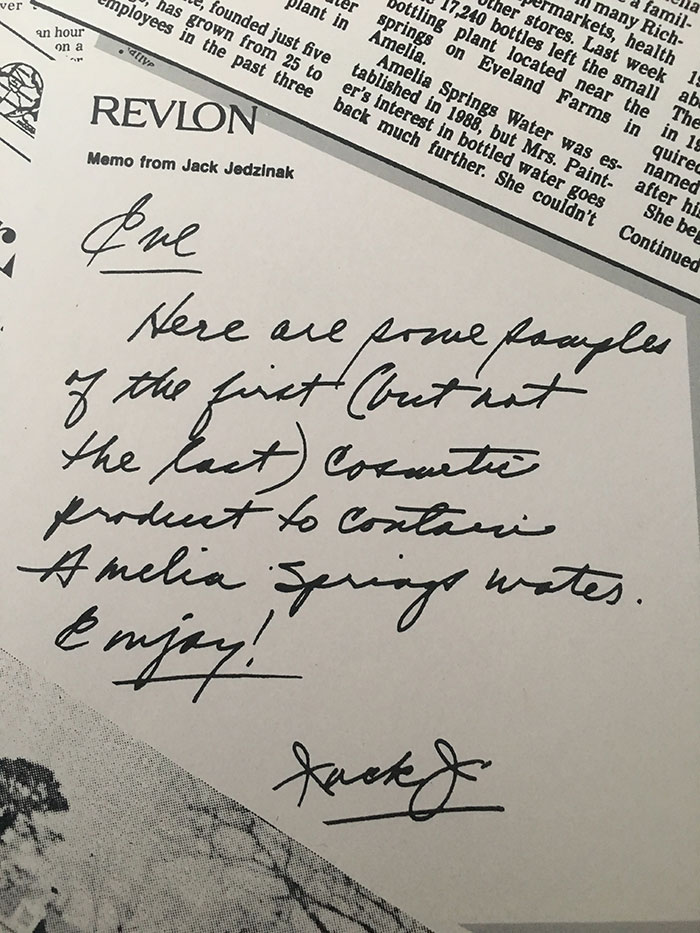 ver
an hour
on a
, founded just five
, has grown from 25 to
employees in the past three
plant in
a famil-
in many Rich-
permarkets, health
other stores. Last week
17,240 bottles left the small
bottling plant located near the
springs on Eveland Farms in
Amelia.
Amelia Springs Water was es-
tablished in 1988, but Mrs. Paint-
er's interest in bottled water goes
back much further. She couldn't
The
in 19
quired
named
after hi
She be
Continued
REVLON
Memo from Jack Jedzinak
Eve
Here are some samples
of the first (but not
the last) cosmetic
product to contain
Amelia Springs water.
Enjoy!
Jack J